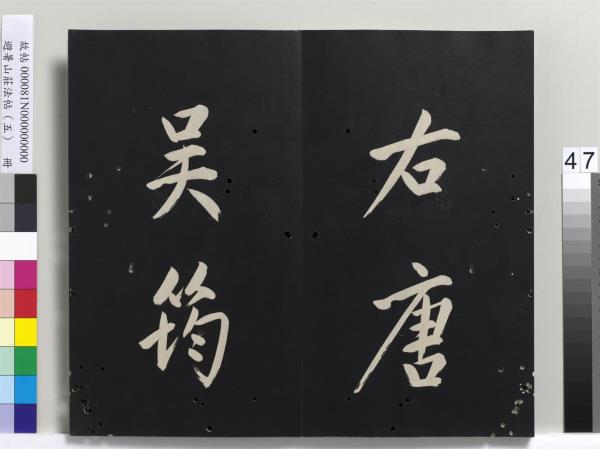 右唐
吳筠
故帖 000081N000000000
避暑山莊法帖（五） 冊
47